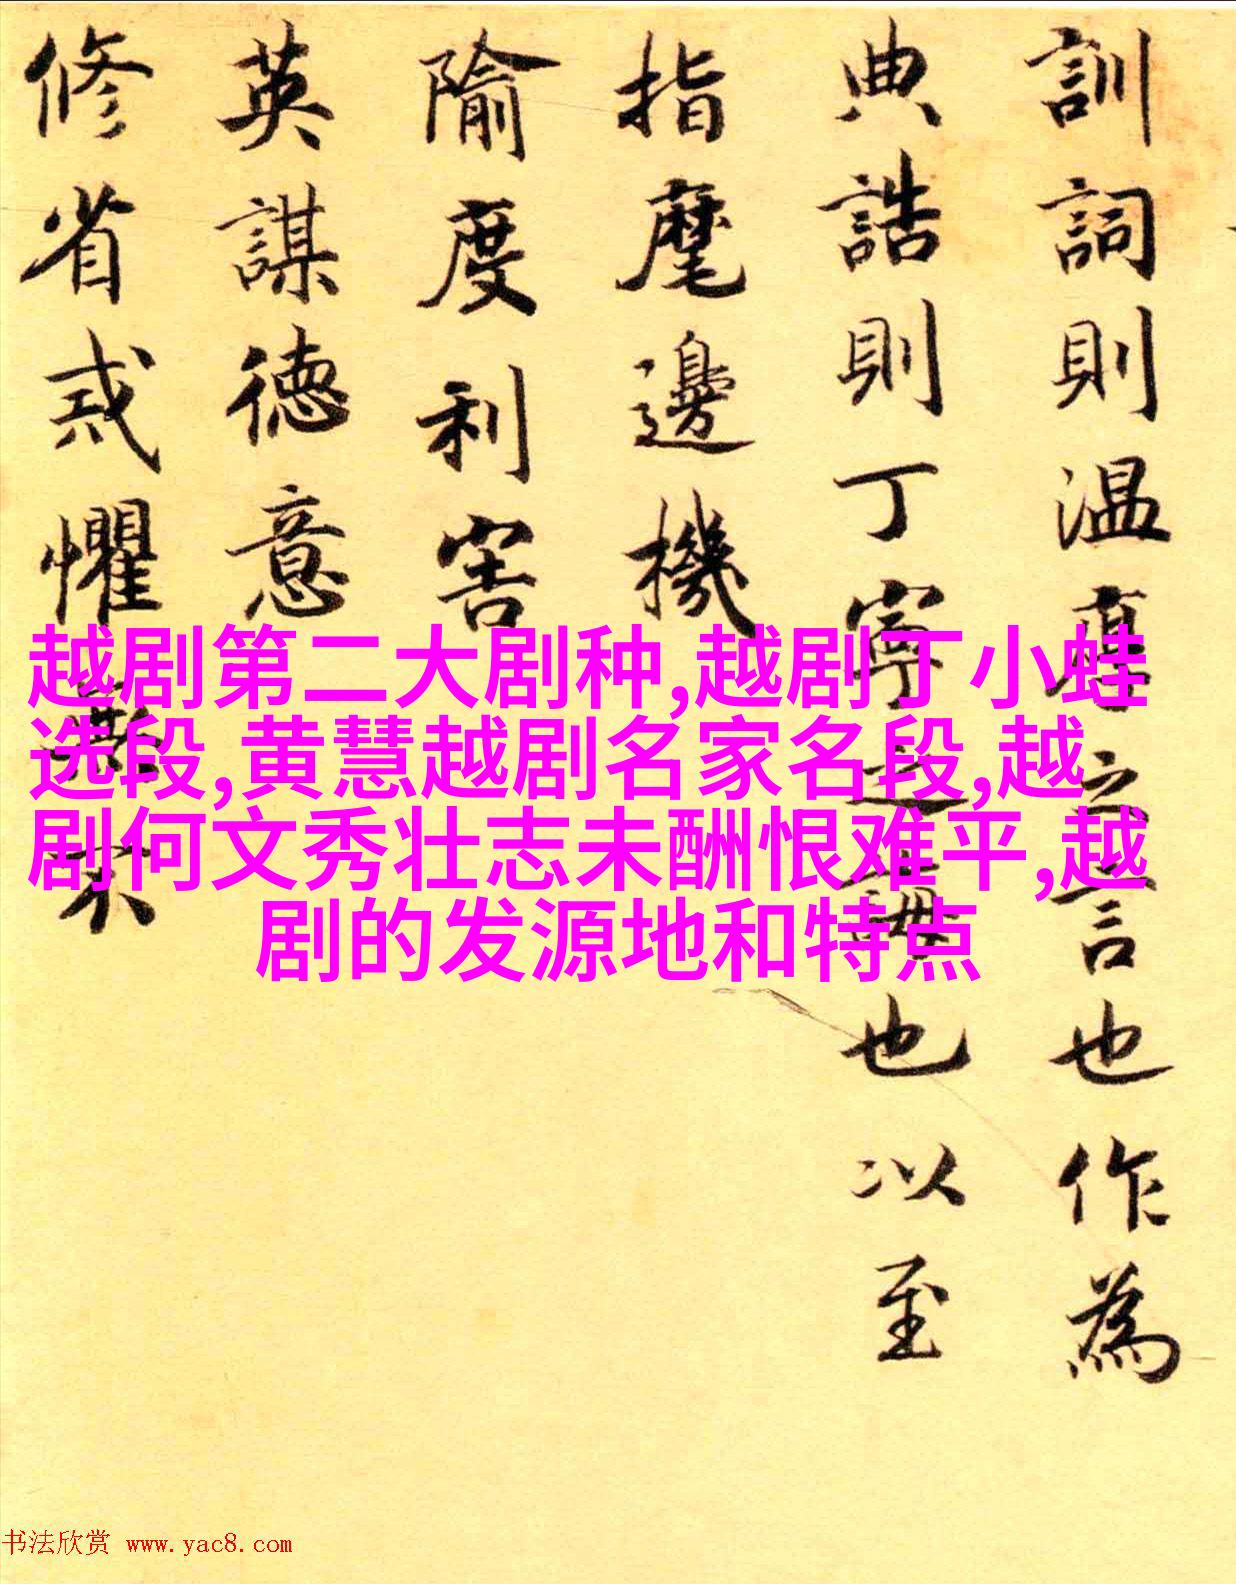 訓詞則温厚之言也作為
典誥則丁寧之誨也以至
指麾邊機
隃度利害
英謀徳意
修省戒懼不
越剧第二大剧种,越剧丁小蛙
选段,黄慧越剧名家名段,越
剧何文秀壮志未酬恨难平,越
剧的发源地和特点
书法欣赏 www.yac8.com